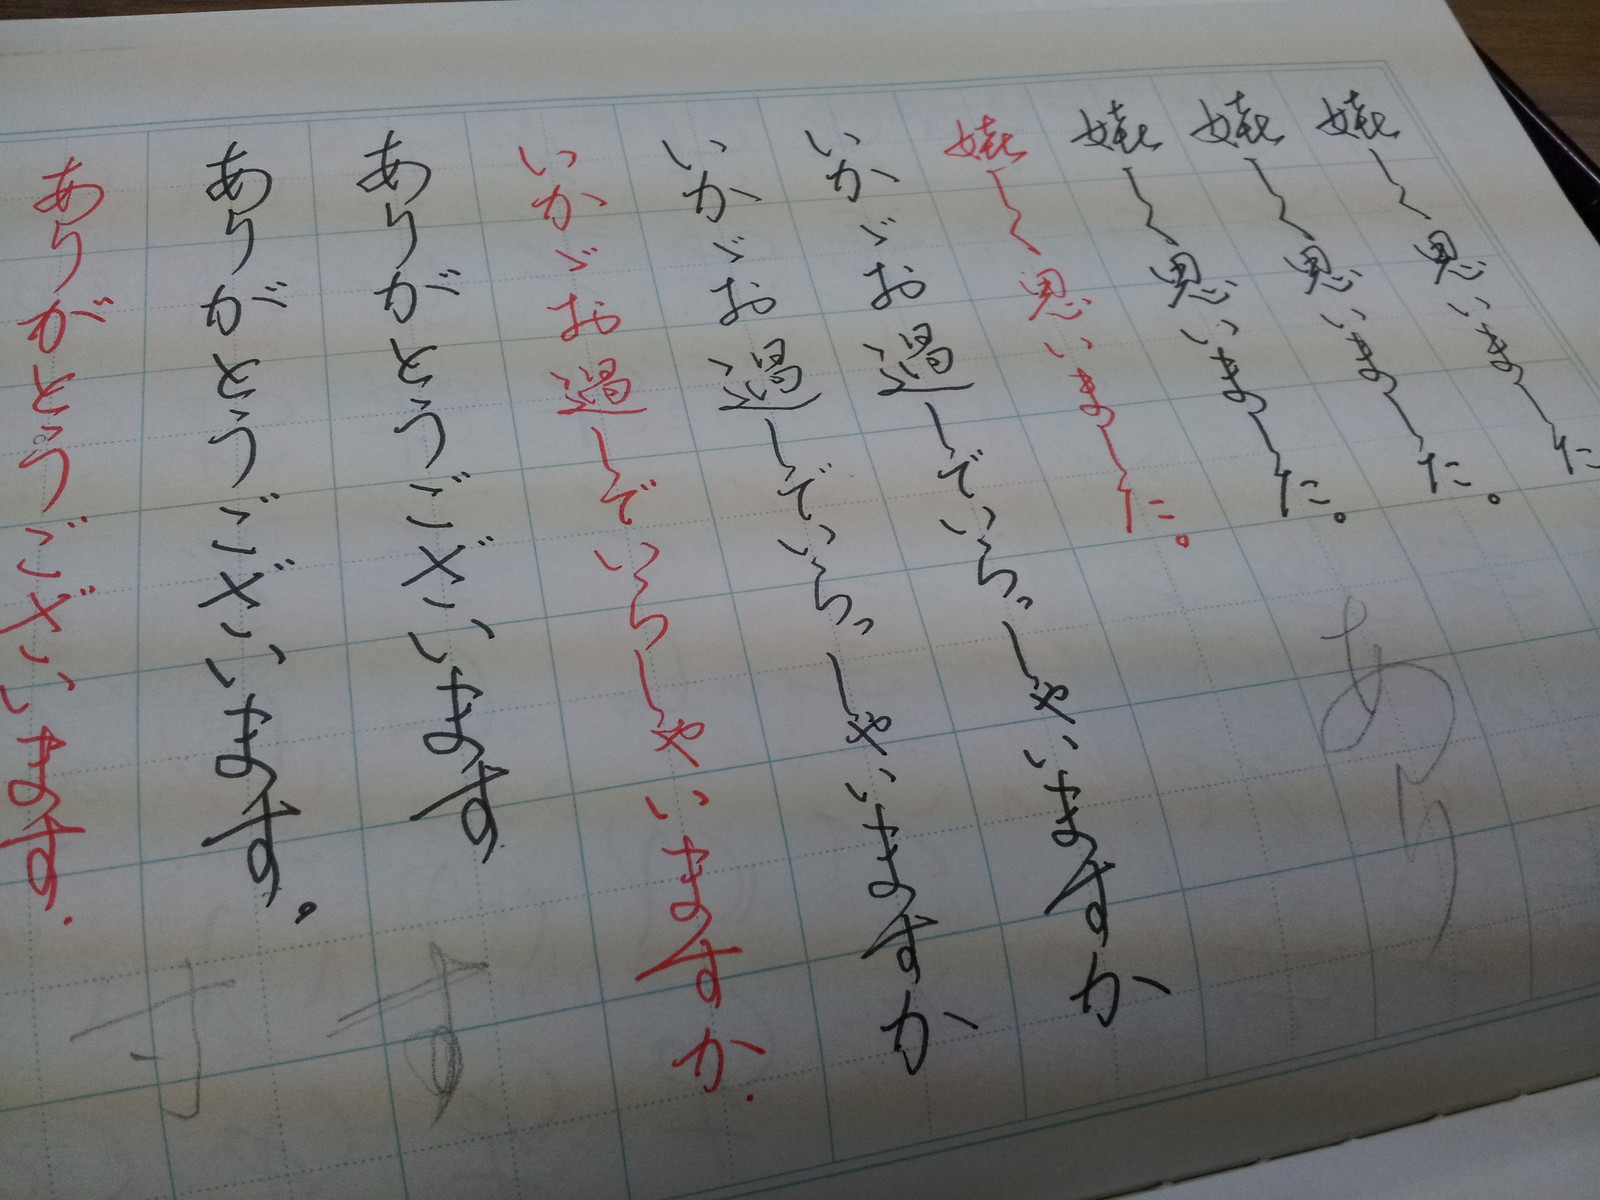 嬉しく思いました
嬉しく思いました。
嬉しく思いました。
嬉しく思いました。
いかゞお過しでいらっしゃいますか
いかゞお過しでいらっしゃいますか
いかゞお過しでいらしゃいますか.
ありがとうございます
ありがとうございます。
ありがとうございます.
あり
す